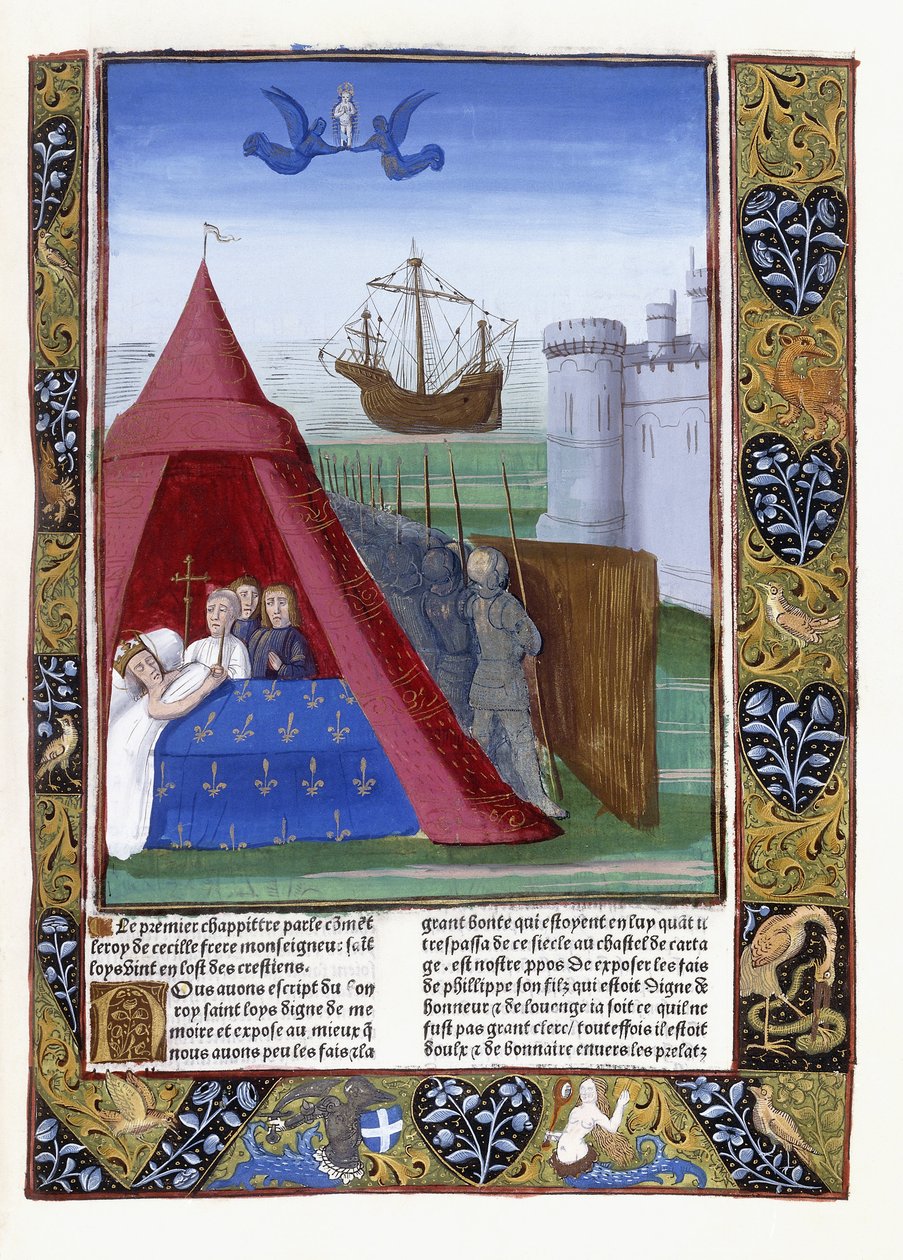 Le premier chappittre parle cõmẽt
le roy de cecille frere monseigneur saĩt
loys vint en lost des crestiens.
Nous auons escript du bon
roy saint loys digne de me
moire et expose au mieux q̃
nous auons peu les fais ⁊ la
grant bonte qui estoyent en luy quãt il
trespassa de ce siecle au chastel de carta
ge. est nostre ppos de exposer les fais
de phillippe son filz qui estoit digne de
honneur ⁊ de louenge ia soit ce quil ne
fust pas grant clerc/ touteffois il estoit
doulx ⁊ de bonnaire enuers les prelatz